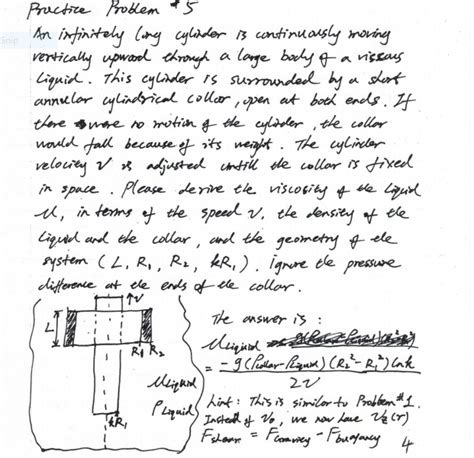 Practice Problem #5
An infinitely long cylinder is continuously moving
vertically upward through a large body of a viscous
liquid. This cylinder is surrounded by a short
annular cylindrical collar, open at both ends. If
there were no motion of the cylinder, the collar
would fall because of its weight. The cylinder
velocity V is adjusted until the collar is fixed
in space. Please derive the viscosity of the liquid
μ, in terms of the speed V, the density of the
liquid and the collar, and the geometry of the
system (L, R₁, R₂, kR₁). Ignore the pressure
difference at the ends of the collar.
↑V
L
R₁ R₂
μLiquid
ρLiquid
kR₁
The answer is :
μLiquid
= -g(ρcollar-ρLiquid)(R₂²-R₁²)lnk / 2V
hint : This is similar to Problem #1.
Instead of V₀, we now have Vz(r)
Fshear = FGravity - Fbuoyancy
4